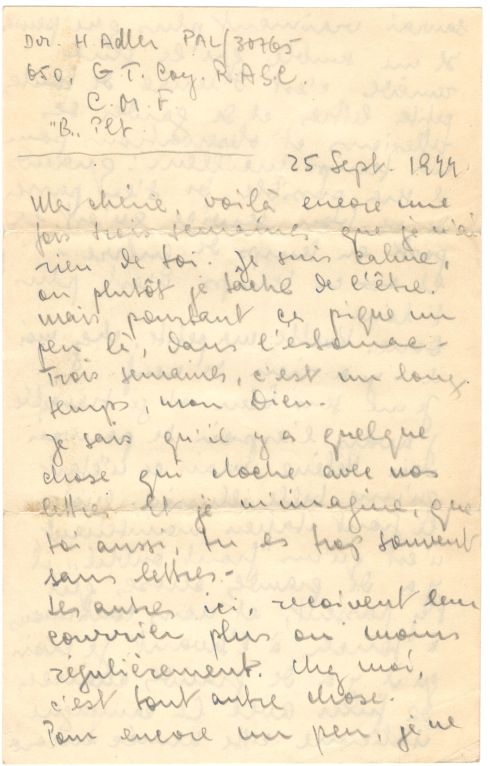 Dvr. H Adler PAL/30765
650. G. T. Coy. R.A.S.C.
C.M.F
"B" Plt.
25 Sept. 1944
Ma chérie, voilà encore une
fois trois semaines que je n'ai
rien de toi. Je suis calme,
ou plutôt je tâche de l'être.
mais pourtant ça pique un
peu là, dans l'estomac -
Trois semaines, c'est un long
temps, mon Dieu.
Je sais qu'il y a quelque
chose qui cloche avec nos
lettres et je m'imagine, que
toi aussi, tu es trop souvent
sans lettres.
Les autres ici, reçoivent leur
courrier plus ou moins
régulièrement. Chez moi,
c'est tout autre chose.
Pour encore un peu, je ne